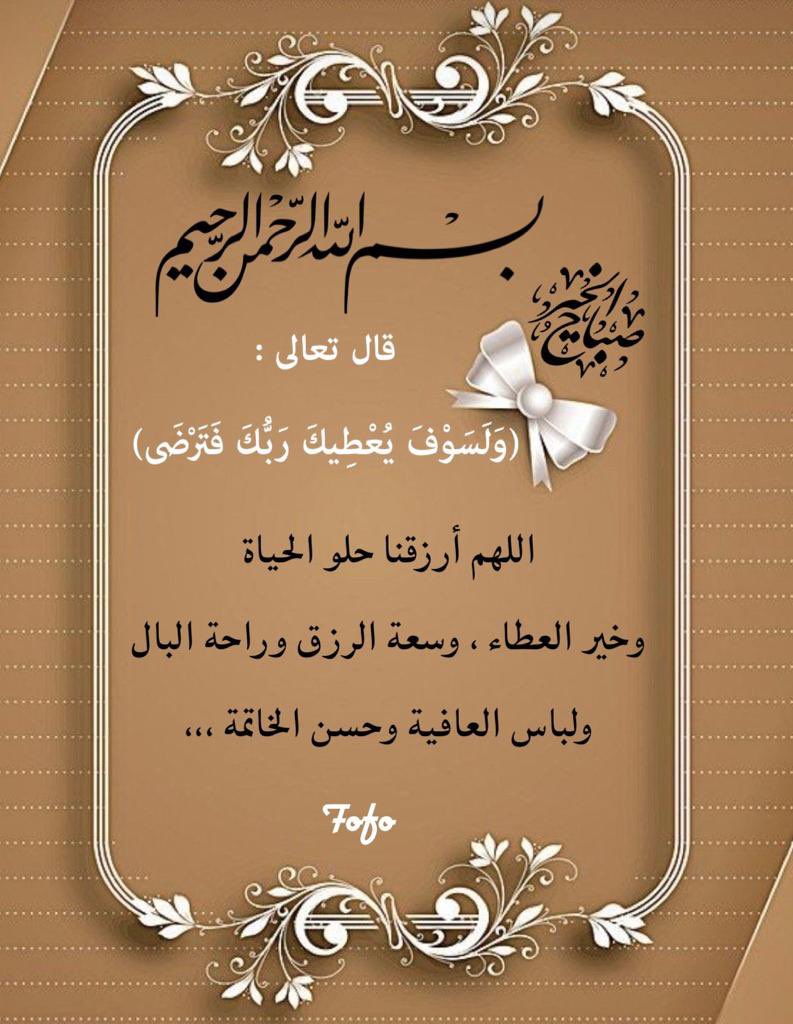 بسم الله الرحمن الرحيم
صباح الخير
قال تعالى :
(وَلَسَوْفَ يُعْطِيكَ رَبُّكَ فَتَرْضَى)
اللهم أرزقنا حلو الحياة
وخير العطاء ، وسعة الرزق وراحة البال
ولباس العافية وحسن الخاتمة ،،،
Fofo